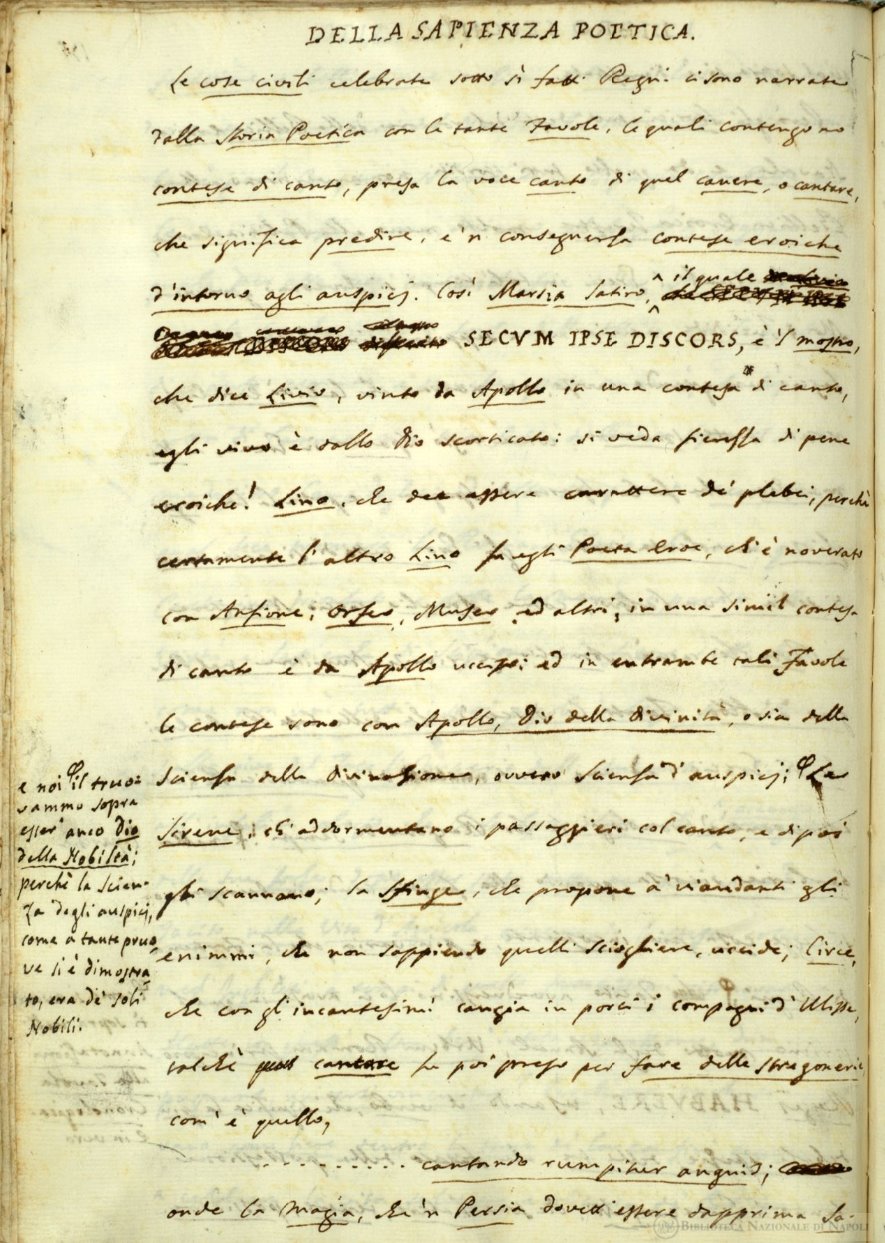 DELLA SAPIENZA POETICA.
Le cose civili celebrate sotto sì fatti Regni ci sono narrate
dalla Storia Poetica con le tante Favole, le quali contengono
contese di canto, presa la voce canto di quel canere, o cantare,
che significa predire, e 'n conseguenza contese eroiche
d'intorno agli auspicj. Così Marsia Satiro, il quale
SECVM IPSE DISCORS, è 'l mostro,
che dice Livio, vinto da Apollo in una contesa di canto,
egli vivo è dallo Dio scorticato: si veda fierezza di pene
eroiche! Lino, che dee essere carattere de' plebei, perchè
certamente l'altro Lino fu egli Poeta Eroe, ch'è noverato
con Anfione, Orfeo, Museo, ed altri, in una simil contesa
di canto è da Apollo ucciso: ed in entrambe tali Favole
le contese sono con Apollo, Dio della divinità, o sia della
Scienza della divinazione, ovvero Scienza d'auspicj; Le
Sirene, ch'addormentano i passaggieri col canto, e di poi
gli scannano; la Sfinge, che propone a' viandanti gli
enimmi, che non sappiendo quelli sciogliere, uccide; Circe,
che con gli incantesimi cangia in porci i compagni d'Ulisse,
talchè cantare fu poi preso per fare delle stregonerie
com'è quello,
. . . . . . . . . . cantando rumpitur anguis;
onde la Magia, che 'n Persia dovett' essere dapprima Sa-
e noi il truo-
vammo sopra
esser anco Dio
della Nobiltà;
perchè la Scien-
za degli auspicj,
come a tante pruo-
ve si è dimostra-
to, era de' soli
Nobili.
BIBLIOTECA NAZIONALE DI NAPOLI